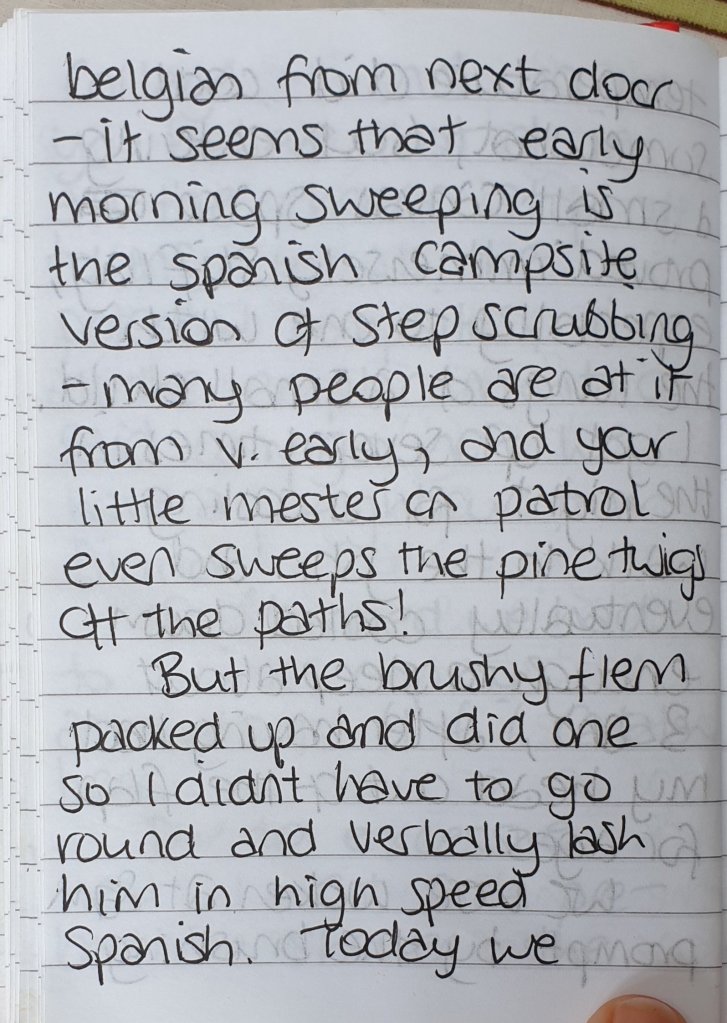 belgian from next door
- it seems that early
morning sweeping is
the spanish campsite
version of step scrubbing
- many people are at it
from v. early, and your
little mester on patrol
even sweeps the pine twigs
off the paths!
But the brushy flem
packed up and did one
so I didn't have to go
round and verbally lash
him in high speed
Spanish. Today we